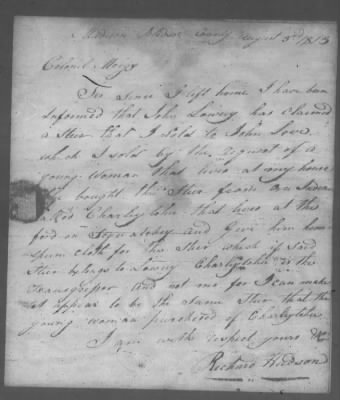 Madison County August 3rd 1813
Colonel Meigs
Sir Since I left home I have been
informed that John Lowry has claimed
a Steer that I sold to John Love
which I sold by the request of a
young woman that lives at my house
She bought the Steer from an Indian
Charley that lives at the
ford on and give him home
spun cloth for the Ster which if said
Steer belongs to Lowry Charley is the
transgressor and not me for I can make
it appear to be the same Steer that the
young woman purchased of Charley
I am with respect yours &c
Richard Hudson